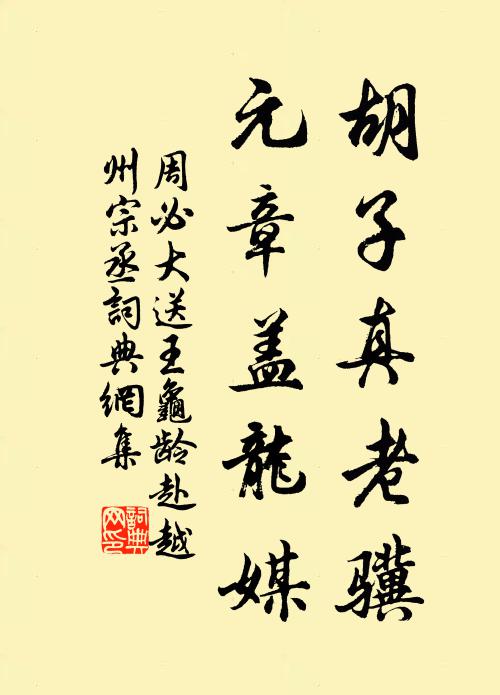 胡子真老骥
元章盖龍媒
周必大送王龜龄赴越
州宗丞詞典網集
詞典网印